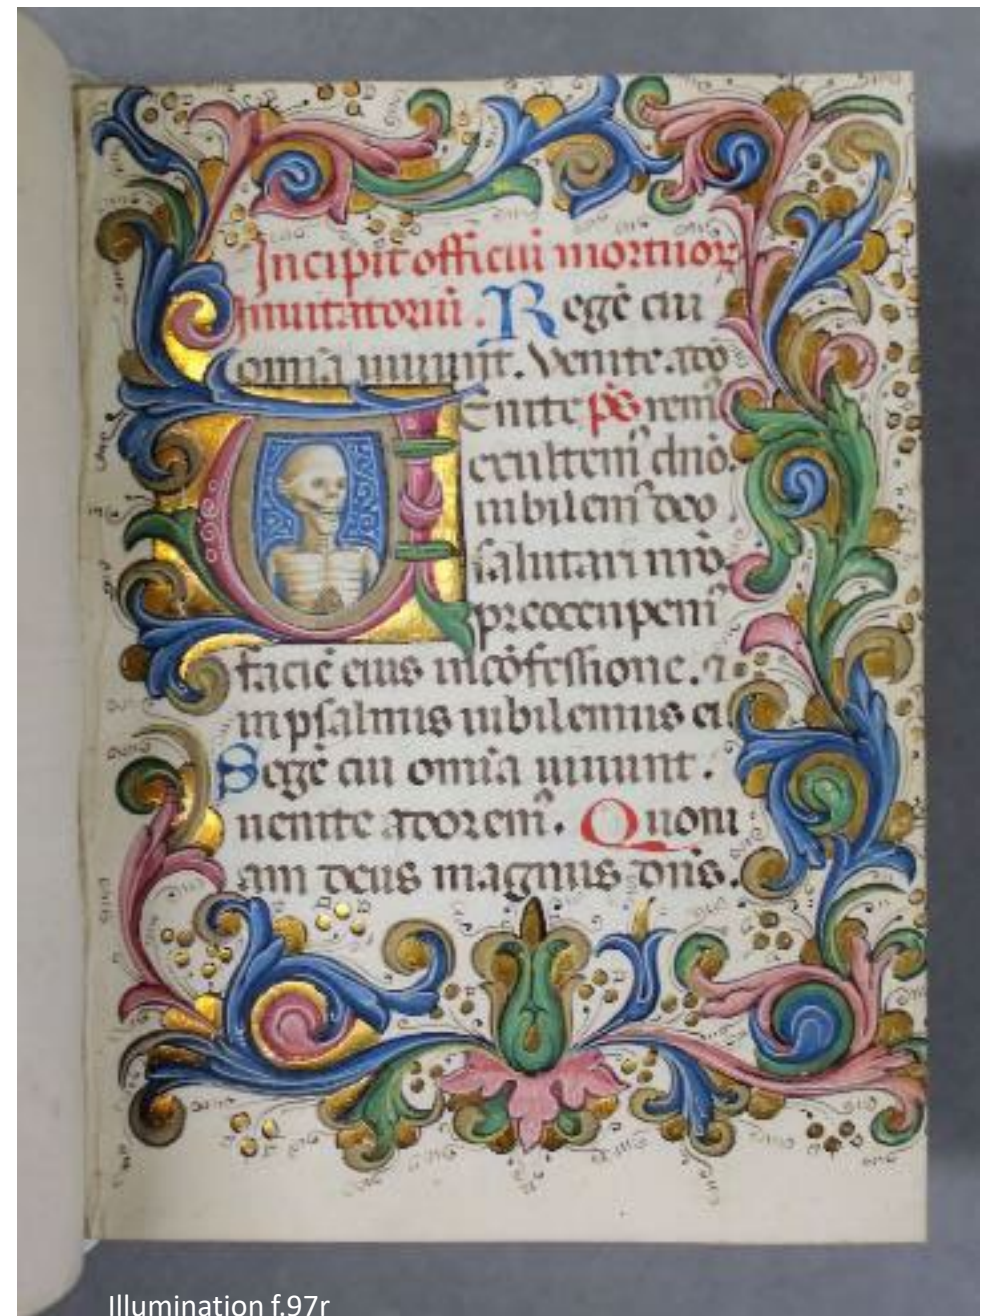 Incipit officiū mortuor
Inuitatoriū. Regē cui
om̄ia uiuunt. Venite. ado
Enite p̄s rem̄
exultem̄ dn̄o.
iubilem̄ deo
salutari nr̄o.
preoccupem̄
faciē eius in cōfessione. ⁊
in psalmis iubilemus ei
Regē cui om̄ia uiuunt.
uenite adorem̄. Quoni
am deus magnus dn̄s.
Illumination f.97r